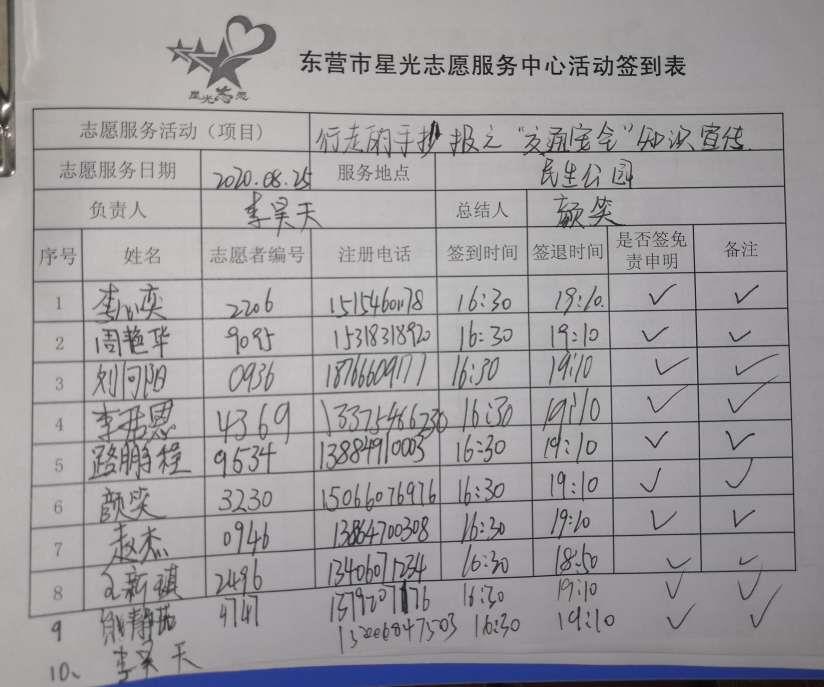 星光志愿
东营市星光志愿服务中心活动签到表
志愿服务活动（项目） 行走的手抄报之“交通安全”知识宣传
志愿服务日期 2020.08.25 服务地点 民生公园
负责人 李昊天 总结人 颜笑
序号 姓名 志愿者编号 注册电话 签到时间 签退时间 是否签免责申明 备注
1 2206 15154601178 16:30 19:10. ✓ ✓
2 周艳华 9095 15318318920 16:30 19:10 ✓ ✓
3 刘向阳 0936 18766609177 16:30 19:10 ✓ ✓
4 4369 13375466236 16:30 19:10 ✓ ✓
5 路鹏程 9634 13884910003 16:30 19:10 ✓ ✓
6 颜笑 3230 15066076976 16:30 19:10 ✓ ✓
7 赵杰 0946 13864700308 16:30 19:10 ✓ ✓
8 王新琪 2496 13406071234 16:30 18:50 ✓ ✓
9 4747 16:30 19:10 ✓ ✓
10、 李昊天 15206847503 16:30 19:10 ✓ ✓